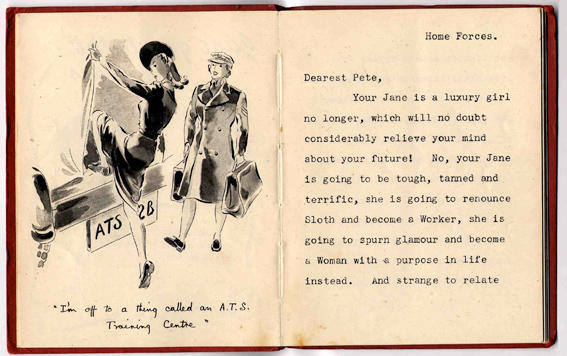 ATS 2B
"I'm off to a thing called an A.T.S.
Training Centre"
Home Forces.
Dearest Pete,
Your Jane is a luxury girl
no longer, which will no doubt
considerably relieve your mind
about your future! No, your Jane
is going to be tough, tanned and
terrific, she is going to renounce
Sloth and become a Worker, she is
going to spurn glamour and become
a Woman with a purpose in life
instead. And strange to relate